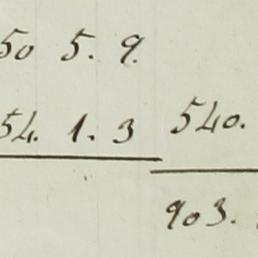 50 5. 9.
54. 1. 3 540.
903.